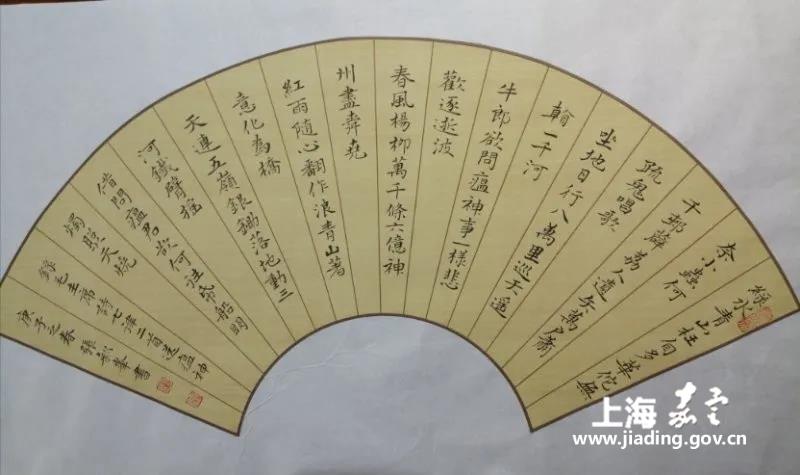 綠水青山枉自多華佗無
奈小蟲何
千邨薜荔人遺矢萬戶蕭
疏鬼唱歌
坐地日行八萬里巡天遥
看一千河
牛郎欲問瘟神事一樣悲
歡逐逝波
春風楊柳萬千條六億神
州盡舜堯
紅雨隨心翻作浪青山著
意化為橋
天連五嶺銀鋤落地動三
河鐵臂搖
借問瘟君欲何往帋船明
燭照天燒
錄毛主席詩七律二首送瘟神
庚子之春張華書
上海嘉定
www.jiading.gov.cn